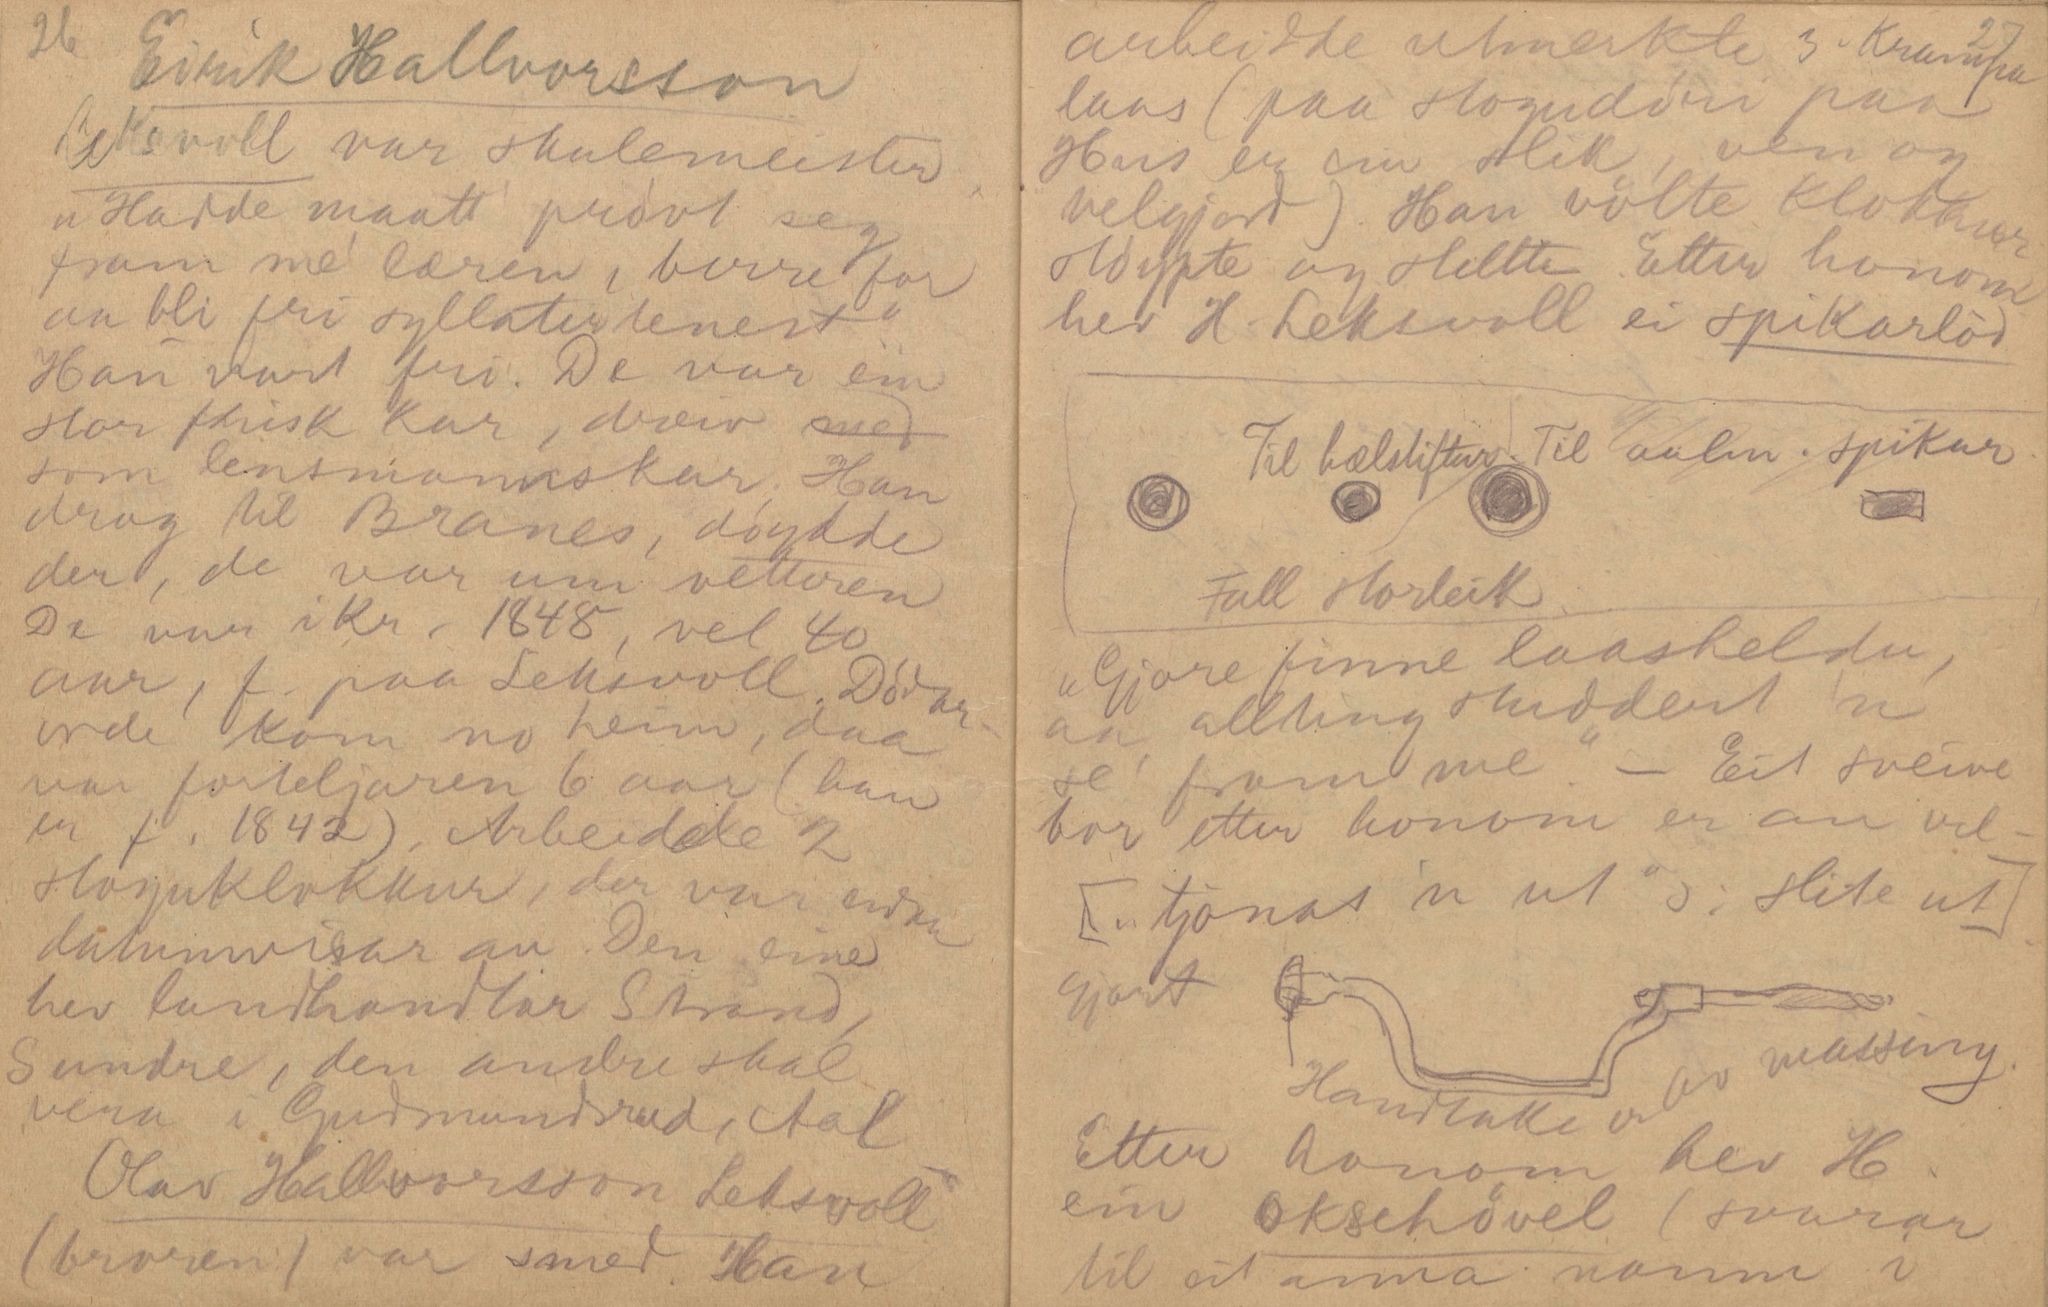 26
Eirik Hallvorsson
Leksvoll var skulemeister,
"Hadde maatt prövt seg
fram me' læren, berre for
aa bli fri syllatertenest"
Han vart fri. De var ein
stor frisk kar, dreiv med
som lensmannskar. Han
drog til Branes, döydde
der, de var um vetteren
De var ikr. 1848, vel 40
aar, f. paa Leksvoll. Dödar-
orde kom no heim, daa
var forteljaren 6 aar (han
er f. 1842). Arbeidde 2
stoguklokkur, der var endaa
datumvisar av. Den eine
hev landhandlar Strand,
Sundre, den andre skal
vera i Gudmundsrud, Aal
Olav Hallvorsson Leksvoll
(broren) var smed. Han
27
arbeidde utmerkte 3. Krampa
laas (paa stogudöri paa
Hus er ein slik, ven og
velgjord). Han völte klokkur
stöypte og stellte. Etter honom
hev H. Leksvoll ei spikarlöd
Til hælstiftur. Til aalm. spikur.
Full storleik
"Gjore finne laaskeldu,
aa allting studdert 'n
se' fram me". — Eit sveive
bor etter honom er an vel-
["tjönast 'n ut" ɔ: slite ut]
gjort
Handtake er av messing.
Etter honom hev H.
ein oksehövel (svarar
til eit anna namn i